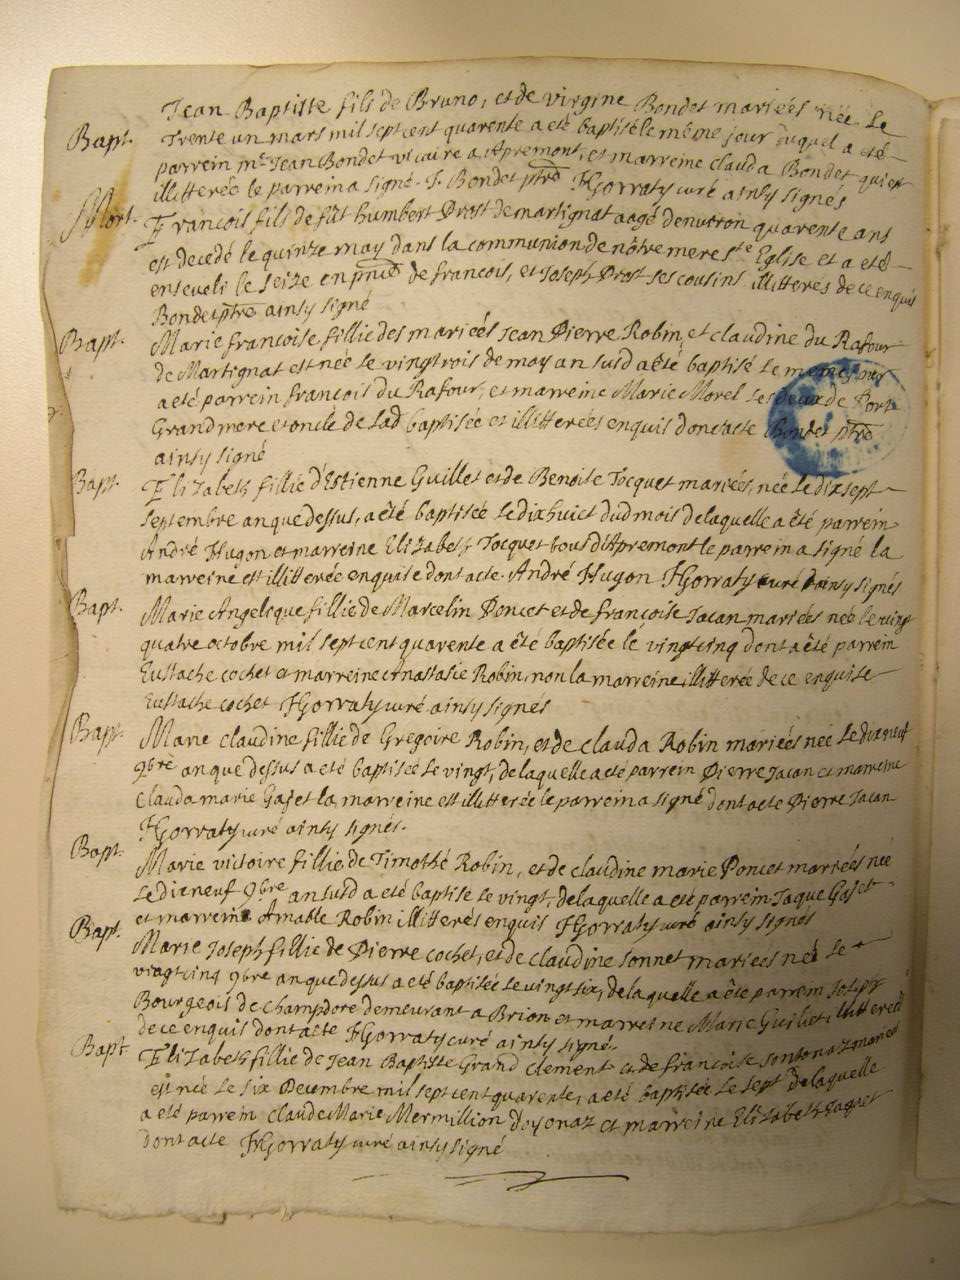 Jean Baptiste fils de Bruno, et de virgine Bondet mariées née Le
Bapt. Trente un mars mil sept cent quarente a eté baptisé le même jour duquel a eté
parrein mre. Jean Bondet vicaire a Apremont, et marreine clauda Bondet qui est
illitterée le parrein a signé. J. Bondet ptre HGorraty curé ainsy signés
Mort. François fils de fût humbert Drost de martignat aagé denviron quarente ans
est decedé le quinze may dans la communion de nôtre mere ste Eglise et a eté
enseveli le seize en pnce de francois, et Joseph Drost ses cousins illitterés de ce enquis
Bondet ptre ainsy signé
Bapt. Marie francoise fillie des mariées Jean Pierre Robin, et claudine du Rafour
de Martignat est née le vingtrois de may an susd a êté baptisé le meme jour
a eté parrein francois du Rafour, et marreine Marie Morel les deux de Port
Grand mere et oncle de lad. baptisée et illitterées enquis dont acte Bondet ptre
ainsy signé
Bapt. Elizabeth fillie d'Estienne Guillet et de Benoite Tocquet mariées, née le dix sept
septembre an que dessus, a êté baptisée le dixhuict dud mois de laquelle a êté parrein
André Hugon et marreine Elizabeth Tocquet tous d'Apremont le parrein a signé la
marreine est illitterée enquise dont acte. André Hugon HGorraty curé ainsy signés
Bapt. Marie Angelique fillie de Marcelin Poncet et de françoise Jacan mariées née le vingt
quatre octobre mil sept cent quarente a êté baptisée le vingtcinq dont a êté parrein
Eustache cochet et marreine Anastasie Robin, non la marreine illitterée de ce enquise
Eustache cochet HGorraty curé ainsy signés
Bapt. Marie claudine fillie de Gregoire Robin, et de clauda Robin mariées née le dixneuf
9bre an que dessus a eté baptisée le vingt, de laquelle a eté parrein Pierre Jacan et marreine
Clauda marie Gajet la marreine est illitterée le parrein a signé dont acte Pierre Jacan
HGorraty curé ainsy signés.
Bapt. Marie victoire fillie de Timothé Robin, et de claudine marie Poncet mariées née
Le dixneuf 9bre an susd a eté baptise le vingt, de laquelle a eté parrein Jaque Gajet
et marreine Amable Robin illitterés enquis HGorraty curé ainsy signés
Bapt. Marie Joseph fillie de Pierre cochet, et de claudine sonnet mariées née le
vingtcinq 9bre an que dessus a eté baptisée le vingt six, de laquelle a êté parrein Joseph
Bourgeois de Champdore demeurant a Brion et marreine Marie Guillet illitterés
de ce enquis dont acte HGorraty curé ainsy signé.
Bapt Elizabeth fillie de Jean Baptiste Grand clement et de francoise sontonaz mariées
est née le six Decembre mil sept cent quarente, a eté baptisée le sept de laquelle
a eté parrein claude Marie Mermillion d'oyonaz et marreine Elizabeth
dont acte HGorraty curé ainsy signé